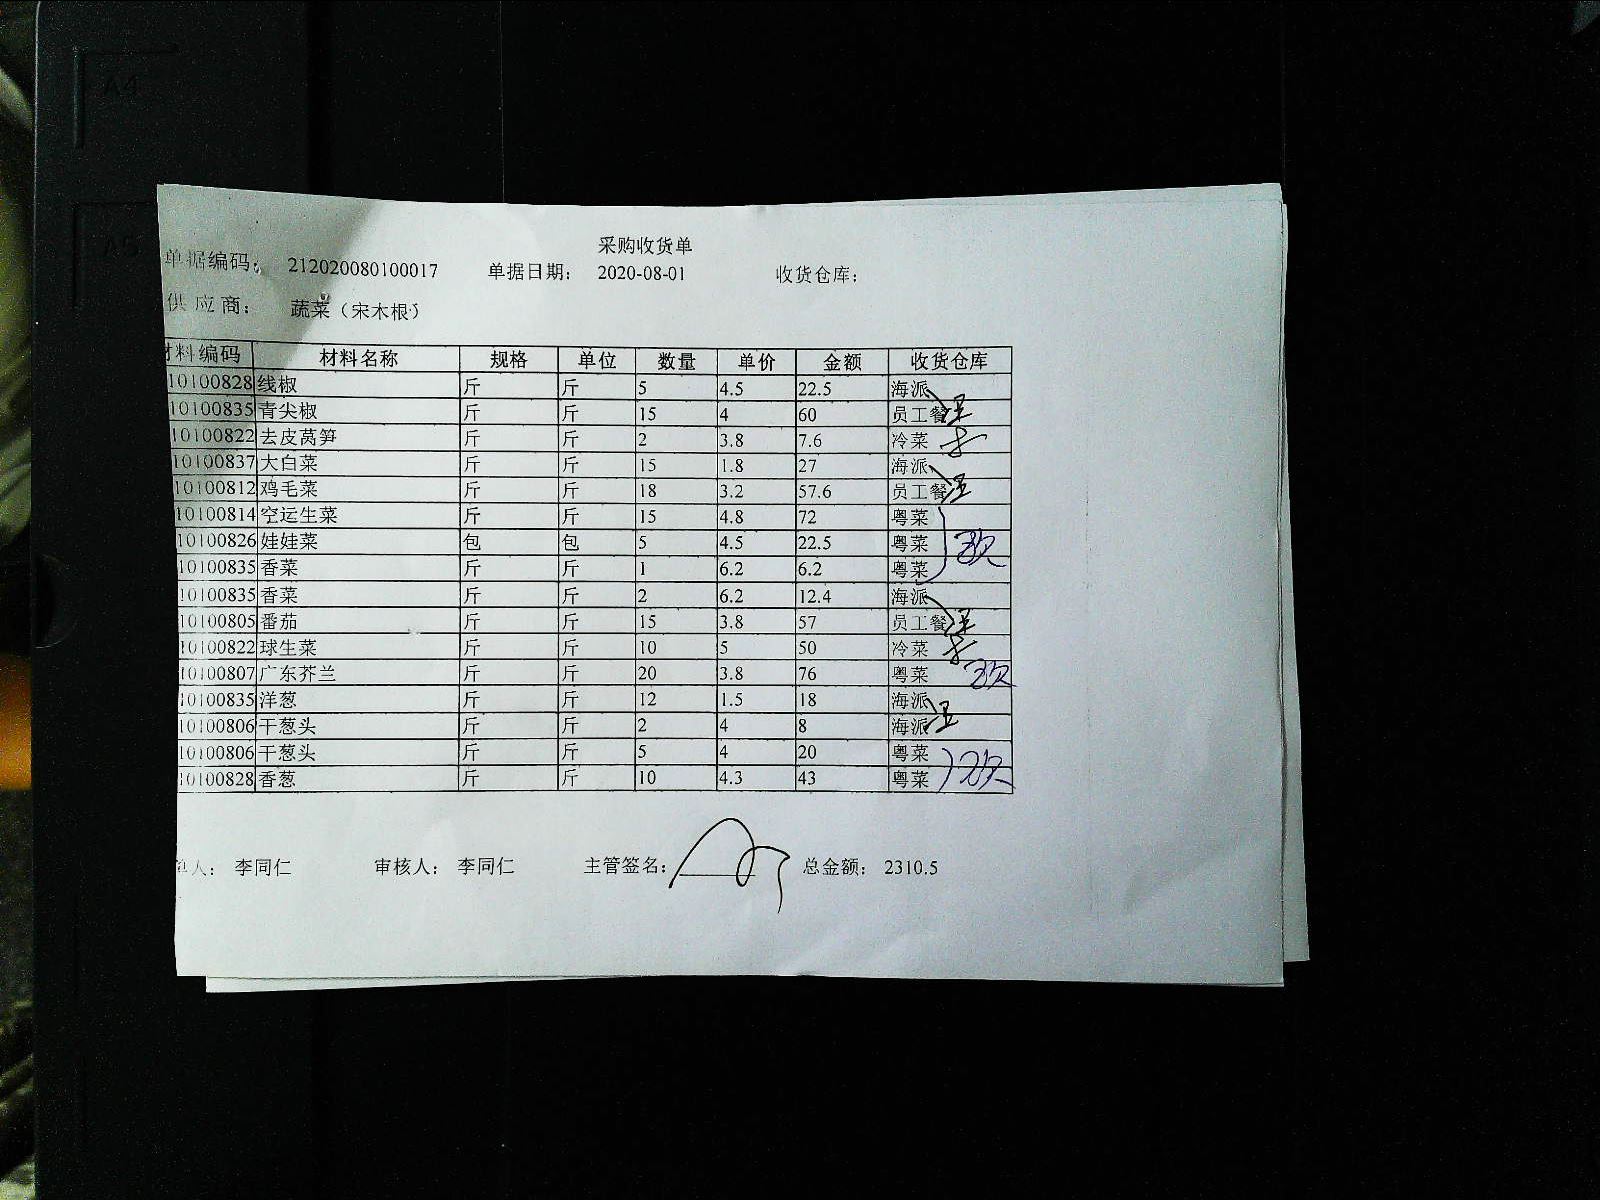 A4
A5
采购收货单
单据编码: 212020080100017 单据日期: 2020-08-01 收货仓库:
供应商: 蔬菜（宋木根）
材料编码 材料名称 规格 单位 数量 单价 金额 收货仓库
10100828 线椒 斤 斤 5 4.5 22.5 海派
10100835 青尖椒 斤 斤 15 4 60 员工餐
10100822 去皮莴笋 斤 斤 2 3.8 7.6 冷菜
10100837 大白菜 斤 斤 15 1.8 27 海派
10100812 鸡毛菜 斤 斤 18 3.2 57.6 员工餐
10100814 空运生菜 斤 斤 15 4.8 72 粤菜
10100826 娃娃菜 包 包 5 4.5 22.5 粤菜
10100835 香菜 斤 斤 1 6.2 6.2 粤菜
10100835 香菜 斤 斤 2 6.2 12.4 海派
10100805 番茄 斤 斤 15 3.8 57 员工餐
10100822 球生菜 斤 斤 10 5 50 冷菜
10100807 广东芥兰 斤 斤 20 3.8 76 粤菜
10100835 洋葱 斤 斤 12 1.5 18 海派
10100806 干葱头 斤 斤 2 4 8 海派
10100806 干葱头 斤 斤 5 4 20 粤菜
10100828 香葱 斤 斤 10 4.3 43 粤菜
单人: 李同仁 审核人: 李同仁 主管签名: 总金额: 2310.5